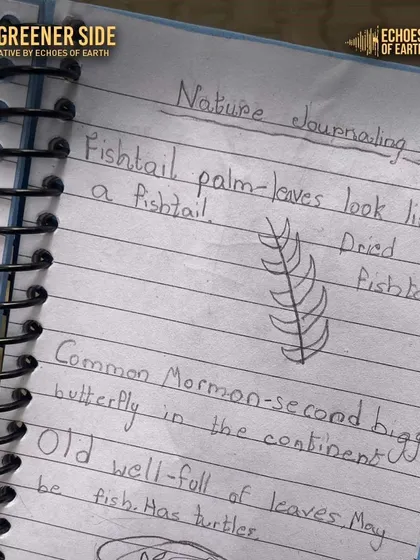 GREENER SIDE
ATIVE BY ECHOES OF EARTH
ECHOES
OF EARTH
Nature Journaling
Fishtail palm-leaves look li
a fishtail.
Dried
fisht
Common Mormon-second bigg
butterfly in the continent
Old well-full of leaves. May
be fish. Has turtles.